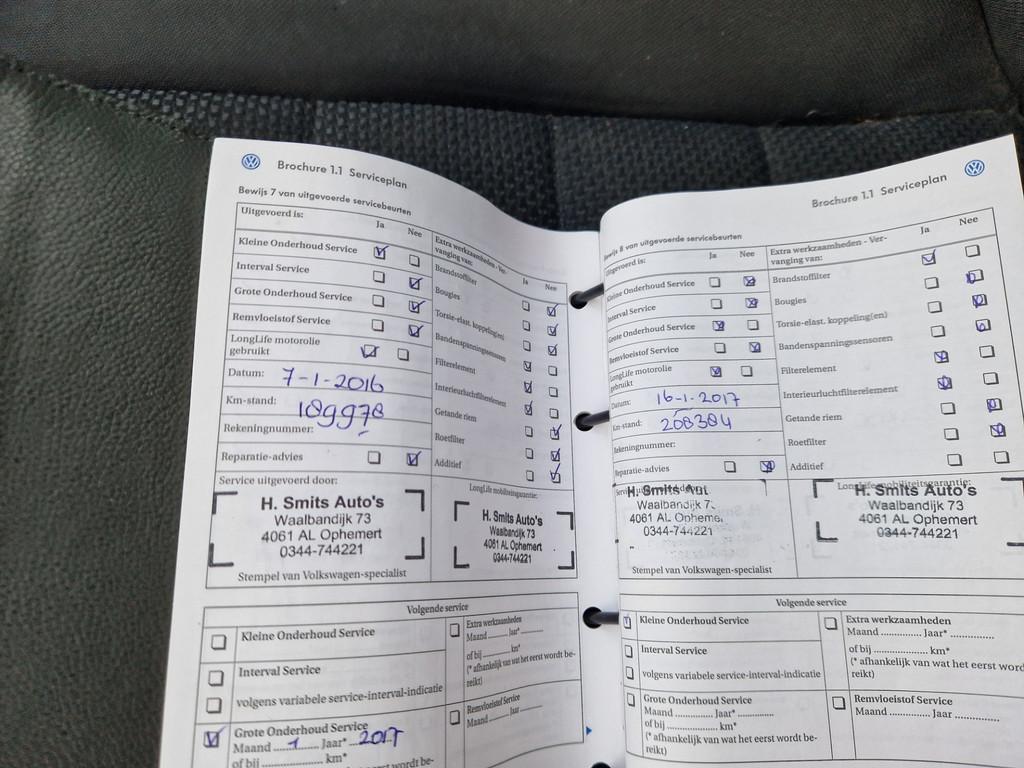 Brochure 1.1 Serviceplan
Bewijs 7 van uitgevoerde servicebeurten
Uitgevoerd is:
Ja Nee
Kleine Onderhoud Service
Interval Service
Grote Onderhoud Service
Remvloeistof Service
LongLife motorolie
gebruikt
Datum: 7-1-2016
Km-stand: 189978
Rekeningnummer:
Reparatie-advies
Extra werkzaamheden - Ver-
vanging van:
Ja Nee
Brandstoffilter
Bougies
Torsie-elast. koppeling(en)
Bandenspanningssensoren
Filterelement
Interieurluchtfilterelement
Getande riem
Roetfilter
Additief
Service uitgevoerd door:
H. Smits Auto's
Waalbandijk 73
4061 AL Ophemert
0344-744221
Stempel van Volkswagen-specialist
LongLife mobiliteitsgarantie:
H. Smits Auto's
Waalbandijk 73
4061 AL Ophemert
0344-744221
Volgende service
Kleine Onderhoud Service
Interval Service
volgens variabele service-interval-indicatie
Grote Onderhoud Service
Maand 1 Jaar* 2017
of bij km*
Extra werkzaamheden
Maand Jaar*
of bij km*
(* afhankelijk van wat het eerst wordt be-
reikt)
Remvloeistof Service
Maand Jaar
Brochure 1.1 Serviceplan
Bewijs 8 van uitgevoerde servicebeurten
Uitgevoerd is:
Ja Nee
Kleine Onderhoud Service
Interval Service
Grote Onderhoud Service
Remvloeistof Service
LongLife motorolie
gebruikt
Datum: 16-1-2017
Km-stand: 208384
Rekeningnummer:
Reparatie-advies
Extra werkzaamheden - Ver-
vanging van:
Ja Nee
Brandstoffilter
Bougies
Torsie-elast. koppeling(en)
Bandenspanningssensoren
Filterelement
Interieurluchtfilterelement
Getande riem
Roetfilter
Additief
H. Smits Aut
Waalbandijk 7
4061 AL Ophemer
0344-744221
Stempel van Volkswagen-specialist
Longlife mobiliteitsgarantie:
H. Smits Auto's
Waalbandijk 73
4061 AL Ophemert
0344-744221
Volgende service
Kleine Onderhoud Service
Interval Service
volgens variabele service-interval-indicatie
Grote Onderhoud Service
Maand Jaar*
of bij km*
(* afhankelijk van wat het eerst wordt be-
reikt)
Extra werkzaamheden
Maand Jaar*
of bij km*
(* afhankelijk van wat het eerst word
reikt)
Remvloeistof Service
Maand Jaar